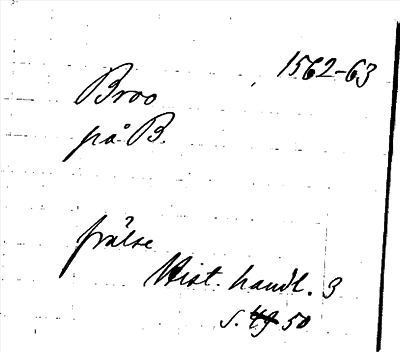 1562-63
Broo
på B.
frälse
Hist. handl. 3
s. 49 50